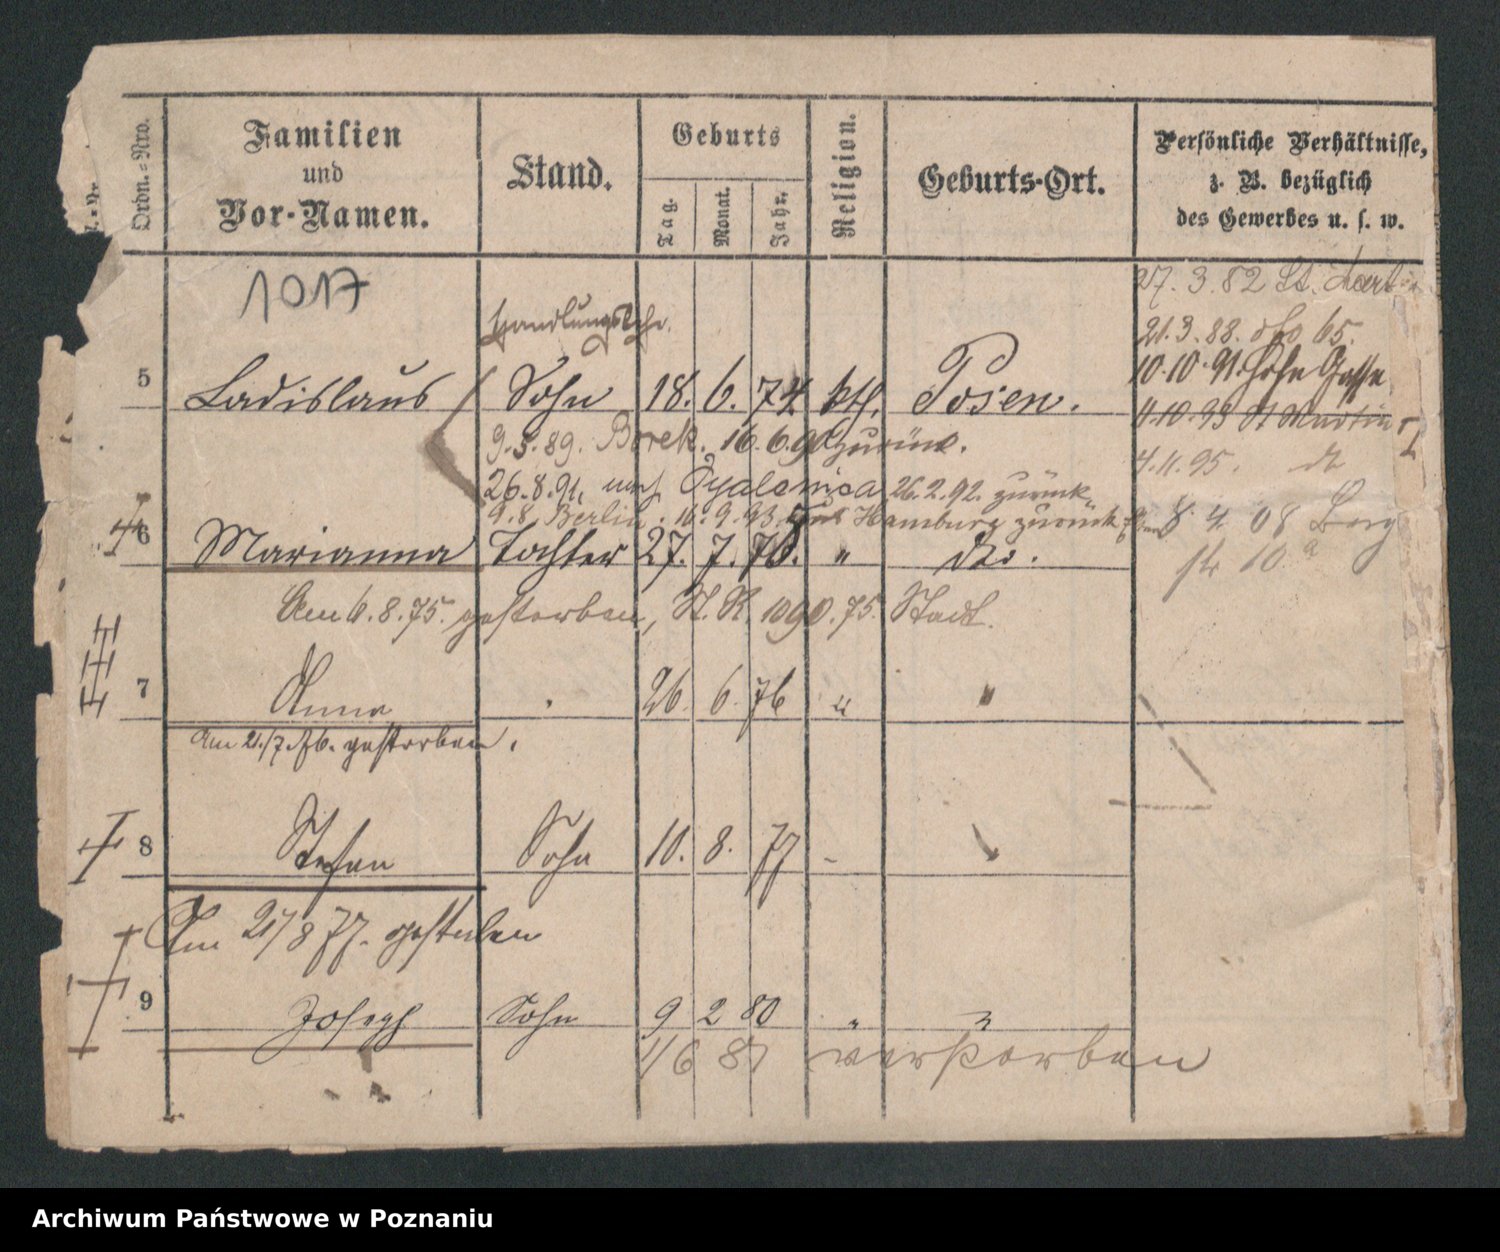 Ordn.-Nro.
Familien
und
Vor-Namen.
Stand.
Geburts
Tag.
Monat.
Jahr.
Religion.
Geburts-Ort.
Persönliche Verhältnisse,
z. B. bezüglich
des Gewerbes u. s. w.
1017
27. 3. 82 St. Mart
21. 3. 88. dto 65.
10. 10. 91. Hohe Gasse
5 Ladislaus Sohn 18. 6. 74 kth. Posen.
11. 10. 93 St Martin
9. 5. 89. Borek. 16. 6. 90 zurück.
4. 11. 95. dt
26. 8. 91. nach Opalenica 26. 2. 92. zurück
9. 8. Berlin. 16. 9. 93. Hamburg zurück
8. 4. 08 Berg
str 10 a
6 Marianna Tochter 27. 7. 75. " do.
Am 6. 8. 75. gestorben, St. R. 1090. 75. Stadt.
7 Anna " 26. 6. 76 " "
Am 21/7. 76. gestorben.
8 Stefan Sohn 10. 8. 77 - "
Am 21/8 77. gestorben
9 Joseph Sohn 9 2 80 " "
1/6 87 verstorben
Archiwum Państwowe w Poznaniu